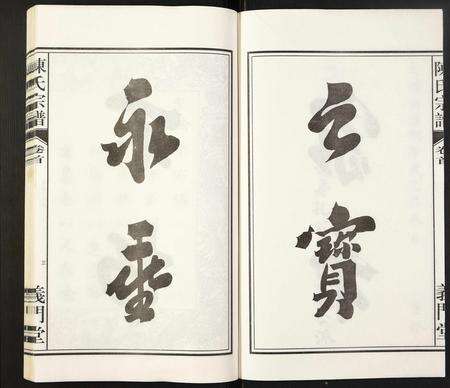 陳氏宗譜 卷首 義門堂
之寶
永垂
陳氏宗譜 卷首 義門堂